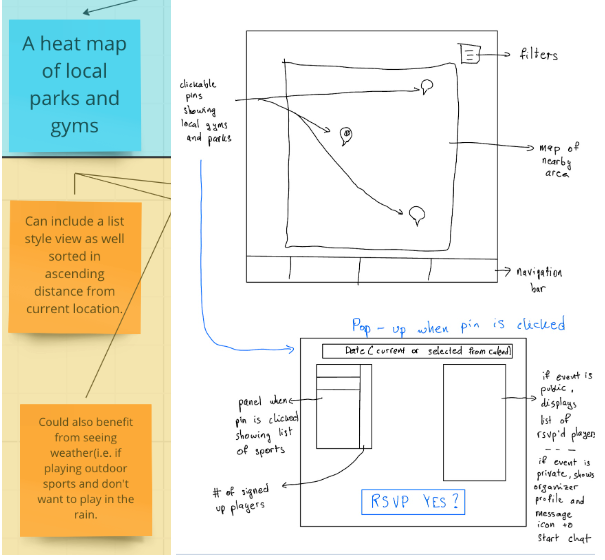 A heat map
of local
parks and
gyms
Can include a list
style view as well
sorted in
ascending
distance from
current location.
Could also benefit
from seeing
weather(i.e. if
playing outdoor
sports and don't
want to play in the
rain.
filters
clickable
pins
showing
local gyms
and parks
map of
nearby
area
navigation
bar
Pop-up when pin is clicked
Date (current or selected from calend)
panel when
pin is clicked
showing list
of sports
# of signed
up players
RSVP YES?
if event is
public,
displays
list of
rsvp'd players
---
if event is
private, shows
organizer
profile and
message
icon to
start chat